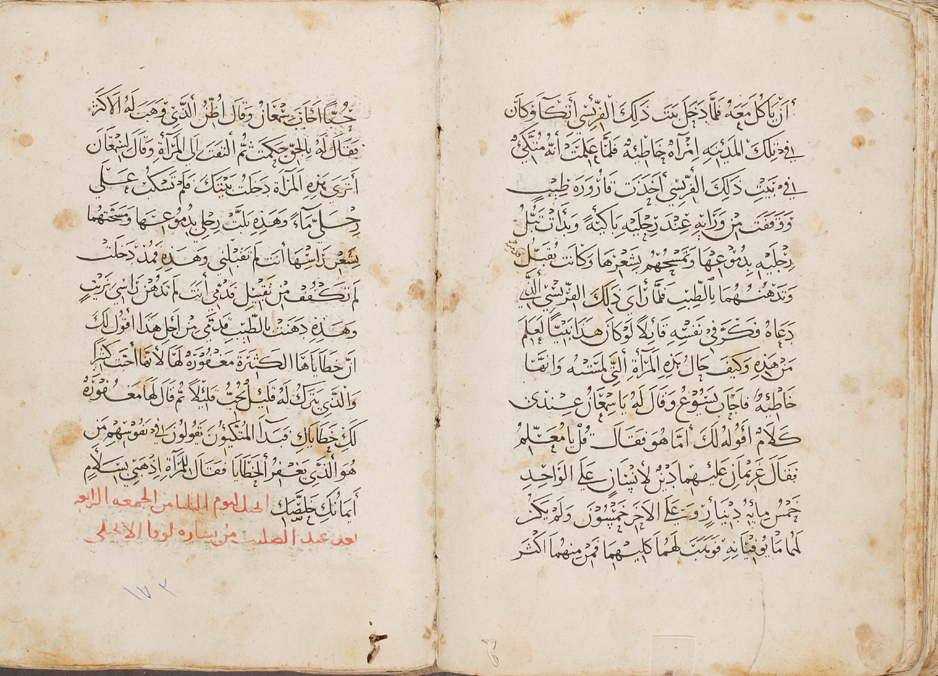 أن يأكل معه فلما دخل بيت ذلك الفريسي أتكأ وكان
في تلك المدينه امرأه خاطيه فلما علمت أنه متكئ
في بيت ذلك الفريسي أخذت قاروره طيب
ووقفت من ورايه عند رجليه باكية وبدأت تبل
رجليه بدموعها وتمسحهم بشعرها وكانت تقبل
وتدهنهما بالطيب فلما رأى ذلك الفريسي الذي
دعاه فكر في نفسه قايلا لو كان هذا نبيا لعلم
من هذه وكيف حال هذه المرأة التي لمسته وانها
خاطئه فاجاب يسوع وقال له يا سمعان عندي
كلام أقوله لك أما هو فقال قل يا معلم
فقال غريمان عليهما دين لانسان على الواحد
خمس مايه دينار وعلى الاخر خمسون ولم يكن
لهما ما يوفيانه فوهب لهما كليهما فمن منهما اكثر
حبا أجاب سمعان وقال أظن الذي وهب له الاكثر
فقال له بالحق حكمت ثم التفت إلى المرأة وقال لسمعان
أترى هذه المرأة دخلت بيتك فلم تسكب على
رجلي ماء وهذه بلت رجلي بدموعها ومسحتهما
بشعر رأسها أنت لم تقبلني وهذه منذ دخلت
لم تكفف من تقبيل قدمي أنت لم تدهن رأسي بزيت
وهذه دهنت بالطيب قدمي من أجل هذا أقول لك
ان خطاياها الكثيرة مغفورة لها لأنها أحبت كثيرا
والذي يترك له قليل يحب قليلا ثم قال لها مغفورة
لك خطاياك فبدأ المتكيون يقولون في نفوسهم من
هو الذي يغفر الخطايا فقال للمرأة اذهبي بسلام
أيمانك خلصك انجيل اليوم من الجمعه الرابعه
بعد عيد الصليب من بشاره لوقا الانجيلي
١٧٢